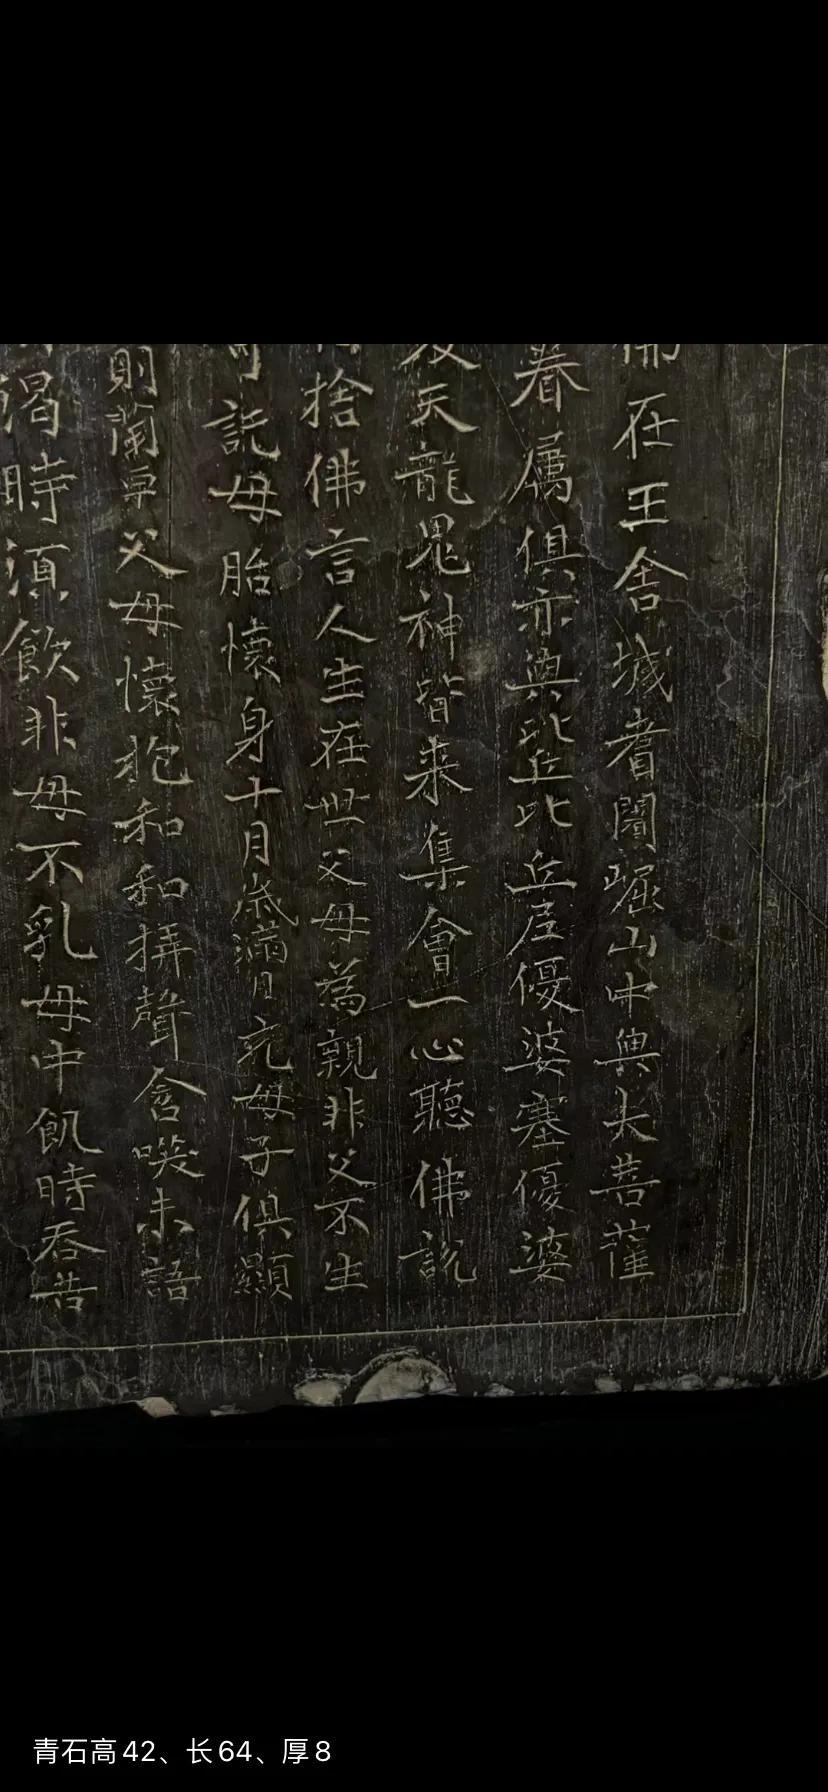 在王舍城耆闍崛山中與大菩薩
眷屬俱亦與比丘比丘尼優婆塞優婆
天龍鬼神皆来集會一心聽佛說
捨佛言人生在世父母為親非父不生
託母胎懷身十月歲滿月充母子俱顯
則蘭車父母懷抱和和弄聲含唤未語
渴時須飲非母不乳母中飢時吞苦
青石高42、长64、厚8